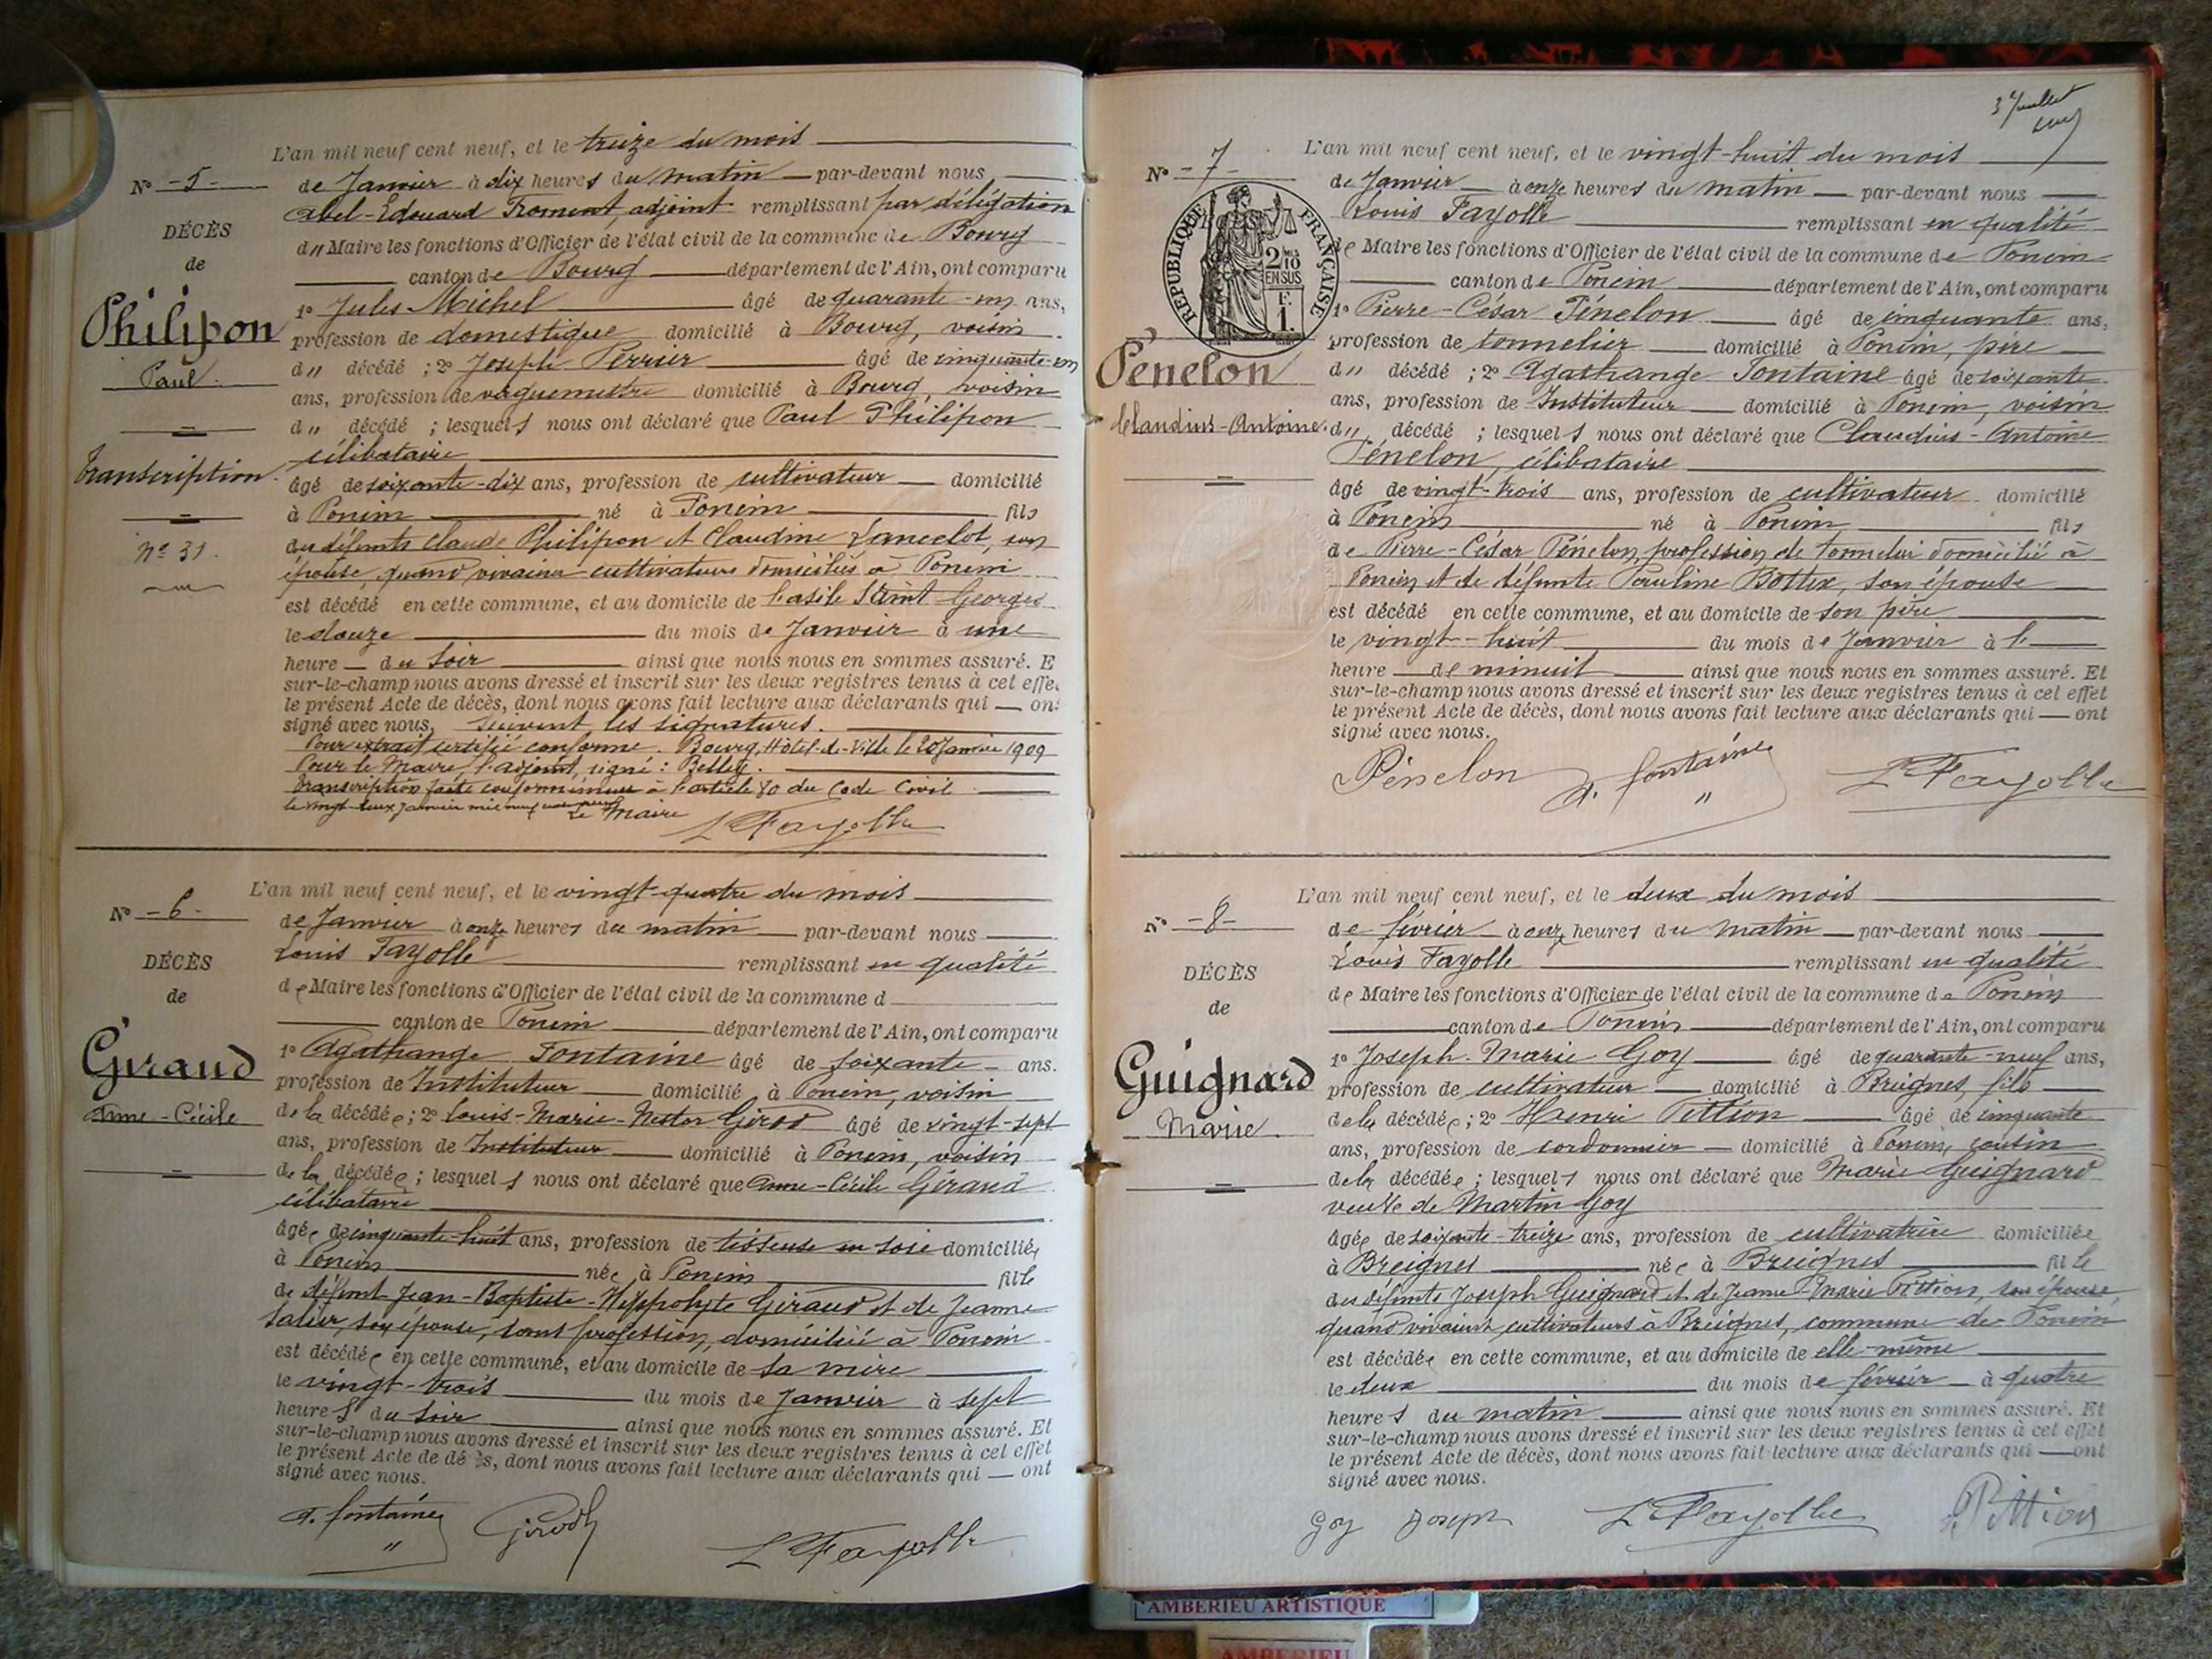 L'an mil neuf cent neuf, et le treize du mois
N° -5- de Janvier à dix heures du matin par-devant nous
Abel-Edouard Froment, adjoint remplissant par délégation
DÉCÈS
d" Maire les fonctions d'Officier de l'état civil de la commune de Bourg
de
canton de Bourg département de l'Ain, ont comparu
Philipon
1° Jules Michel âgé de quarante-un ans,
profession de domestique domicilié à Bourg, voisin
Paul
d" décédé ; 2° Joseph Perrier âgé de cinquante-un
ans, profession de vaguemestre domicilié à Bourg, voisin
d" décédé ; lesquels nous ont déclaré que Paul Philipon
célibataire
Transcription
âgé de soixante-dix ans, profession de cultivateur domicilié
à Poncin né à Poncin fils
N° 31.
des défunts Claude Philipon et Claudine Lancelot, son
épouse, quand vivaient cultivateurs domiciliés à Poncin
est décédé en cette commune, et au domicile de l'asile Saint Georges
le douze du mois de Janvier à une
heure du soir ainsi que nous nous en sommes assuré. E
sur-le-champ nous avons dressé et inscrit sur les deux registres tenus à cet effe
le présent Acte de décès, dont nous avons fait lecture aux déclarants qui ont
signé avec nous, suivent les signatures.
Pour extrait certifié conforme. Bourg, Hôtel-de-Ville le 20 Janvier 1909
Pour le Maire, l'adjoint, signé : Belley.
Transcription faite conformément à l'article 80 du Code Civil
le vingt-deux Janvier mil neuf cent neuf Le Maire
L Fayolle
L'an mil neuf cent neuf, et le vingt-quatre du mois
N° -6- de Janvier à onze heures du matin par-devant nous
Louis Fayolle remplissant en qualité
DÉCÈS
de Maire les fonctions d'Officier de l'état civil de la commune d
de
canton de Poncin département de l'Ain, ont comparu
Giraud
1° Agathange Fontaine âgé de soixante ans.
profession de Instituteur domicilié à Poncin, voisin
Anne-Cécile
de la décédée ; 2° Louis-Marie-Nestor Girod âgé de vingt-sept
ans, profession de Instituteur domicilié à Poncin, voisin
de la décédée ; lesquels nous ont déclaré que Anne-Cécile Giraud
célibataire
âgée de cinquante-huit ans, profession de tisseuse en soie domiciliée
à Poncin née à Poncin fille
de défunt Jean-Baptiste-Hippolyte Giraud et de Jeanne
Salier, son épouse, sans profession, domiciliée à Poncin
est décédée en cette commune, et au domicile de sa mère
le vingt-trois du mois de Janvier à sept
heures du soir ainsi que nous nous en sommes assuré. Et
sur-le-champ nous avons dressé et inscrit sur les deux registres tenus à cet effet
le présent Acte de décès, dont nous avons fait lecture aux déclarants qui ont
signé avec nous.
A. fontaine Girod L Fayolle
3 Juillet
L'an mil neuf cent neuf, et le vingt-huit du mois
N° -7- de Janvier à onze heures du matin par-devant nous
Louis Fayolle remplissant en qualité
RÉPUBLIQUE FRANÇAISE
2 MES
10
EN SUS
F.
1.
de Maire les fonctions d'Officier de l'état civil de la commune de Poncin
canton de Poncin département de l'Ain, ont comparu
1° Pierre-César Pénelon âgé de cinquante ans,
profession de tonnelier domicilié à Poncin, père
Pénelon
d" décédé ; 2° Agathange Fontaine âgé de soixante
ans, profession de Instituteur domicilié à Poncin, voisin
Claudius-Antoine.
d" décédé ; lesquels nous ont déclaré que Claudius-Antoine
Pénelon, célibataire
âgé de vingt-trois ans, profession de cultivateur domicilié
à Poncin né à Poncin fils
de Pierre-César Pénelon, profession de tonnelier domicilié à
Poncin et de défunte Pauline Bottex, son épouse
est décédé en cette commune, et au domicile de son père
le vingt-huit du mois de Janvier à l
heure de minuit ainsi que nous nous en sommes assuré. Et
sur-le-champ nous avons dressé et inscrit sur les deux registres tenus à cet effet
le présent Acte de décès, dont nous avons fait lecture aux déclarants qui ont
signé avec nous.
Pénelon A. fontaine L Fayolle
L'an mil neuf cent neuf, et le deux du mois
N° -8- de février à onze heures du matin par-devant nous
Louis Fayolle remplissant en qualité
DÉCÈS
de Maire les fonctions d'Officier de l'état civil de la commune de Poncin
de
canton de Poncin département de l'Ain, ont comparu
Guignard
1° Joseph-Marie Goy âgé de quarante-neuf ans,
profession de cultivateur domicilié à Breignes, fils
Marie.
de la décédée ; 2° Henri Pittion âgé de cinquante
ans, profession de cordonnier domicilié à Poncin, cousin
de la décédée ; lesquels nous ont déclaré que Marie Guignard
veuve de Martin Goy
âgée de soixante-treize ans, profession de cultivatrice domiciliée
à Breignes née à Breignes fille
des défunts Joseph Guignard et de Jeanne-Marie Pittion, son épouse,
quand vivaient cultivateurs à Breignes, commune de Poncin
est décédée en cette commune, et au domicile de elle-même
le deux du mois de février à quatre
heures du matin ainsi que nous nous en sommes assuré. Et
sur-le-champ nous avons dressé et inscrit sur les deux registres tenus à cet effet
le présent Acte de décès, dont nous avons fait lecture aux déclarants qui ont
signé avec nous.
Goy Joseph L Fayolle Pittion
AMBERIEU ARTISTIQUE
AMBERIEU